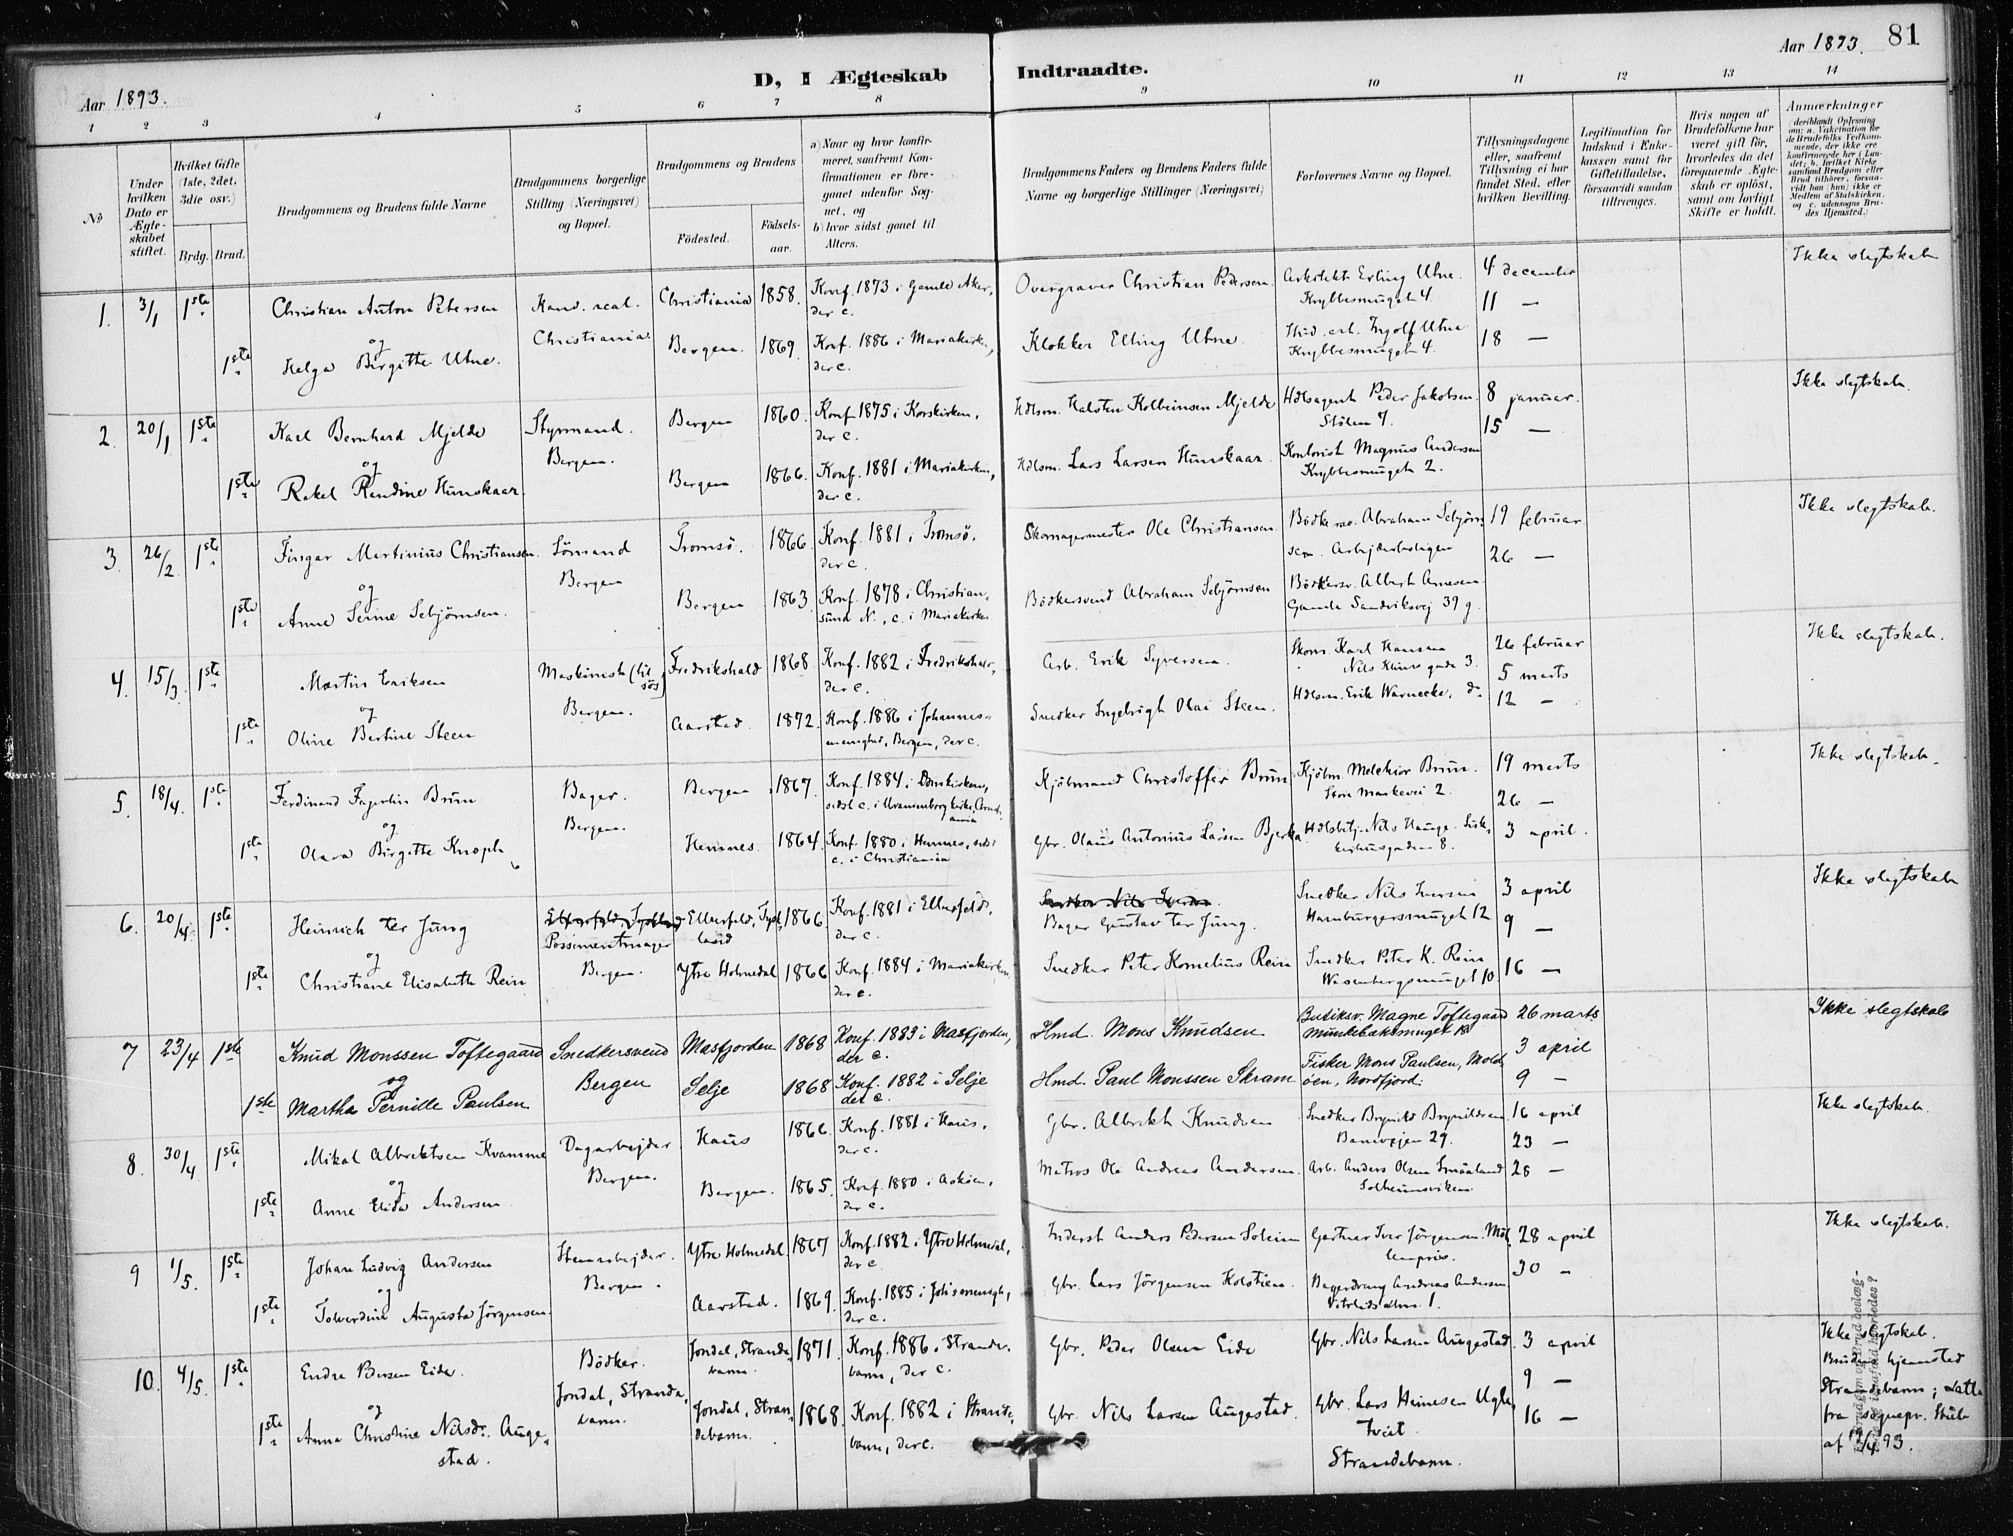 Aar 1893.
D, I Ægteskab Indtraadte.
Aar 1893. 81
1 2 3 4 5 6 7 8 9 10 11 12 13 14
No
Under hvilken Dato er Ægteskabet stiftet.
Hvilket Gifte (1ste, 2det, 3die osv.)
Brdg. Brud.
Brudgommens og Brudens fulde Navne
Brudgommens borgerlige Stilling (Næringsvei) og Bopæl.
Brudgommens og Brudens
Födested. Födselsaar.
a) Naar og hvor konfirmeret, saafremt Konfirmationen er foregaaet udenfor Sognet, og
b) hvor sidst gaaet til Alters.
Brudgommens Faders og Brudens Faders fulde Navne og borgerlige Stillinger (Næringsvei)
Forlovernes Navne og Bopæl.
Tillysningsdagene eller, saafremt Tillysning ei har fundet Sted, efter hvilken Bevilling.
Legitimation for Indskud i Enkekassen samt for Giftetilladelse, forsaavidt saadan tiltrænges.
Hvis nogen af Brudefolkene har været gift før, hvorledes da det foregaaende Ægteskab er oplöst, samt om lovligt Skifte er holdt.
Anmærkninger (deriblandt Oplysning om: a. Vakcination for de Brudefolks Vedkommende, der ikke ere konfirmerede her i Landet; b. hvilket Kirkesamfund Brudgom eller Brud tilhörer, forsaavidt han (hun) ikke er Medlem af Statskirken, og c. udensogns Brudes Hjemsted.)
1. 3/1 1ste Christian Anton Petersen Kand. real. Christiania 1858. Konf. 1873 i Gamle Aker, der c. Overgraver Christian Pedersen. Arkitekt Erling Utne. Krybbesmuget 4. 4 december 11 — Ikke slegtskab
og Christiania
1ste Helga Birgitte Utne. Bergen. 1869. Konf. 1886 i Mariakirken, der c. Klokker Elling Utne. Stud. art. Ingolf Utne Krybbesmuget 4. 18 —
2. 20/1 1ste Karl Bernhard Mjelde Styrmand. Bergen 1860. Konf. 1875 i Korskirken, der c. Hdlsm. Halsten Kolbeinsen Mjelde Hdlsagent Peder Jakobsen. Stölen 7. 8 januar. 15 — Ikke slegtskab.
og Bergen.
1ste Rakel Randine Hunskaar. Bergen 1866. Konf. 1881 i Mariakirken, der c. Hdlsm. Lars Larsen Hunskaar. Kontorist Magnus Andersen Krybbesmuget 2.
3. 26/2 1ste Fingar Martinius Christiansen. Sömand Tromsö. 1866 Konf. 1881 i Tromsö. der c. Skomagermester Ole Christiansen Bödkersv. Abraham Sebjörnsen. Arbeiderboligen 19 februar 26 — Ikke slegtskab.
og Bergen
1ste Anne Serine Sebjörnsen. Bergen 1863. Konf. 1878 i Christiansund N., c. i Mariakirken Bödkersvend Abraham Sebjörnsen Bödkersv. Albert Arnesen. Gamle Sandviksvej 39 g.
4. 15/3 1ste Martin Eriksen Maskinist (til sös) Fredrikshald 1868. Konf. 1882 i Fredrikshald, der c. Arb. Erik Syversen. Skom. Karl Hansen Nils Klims gade 3. 26 februar 5 marts Ikke slegtskab.
og Bergen.
1ste Oline Bertine Steen Aarstad. 1872. Konf. 1886 i Johannesmenighed, Bergen, der c. Snedker Ingebrigt Olai Steen. Hdlsm. Erik Warnecke, do 12 —
5. 18/4. 1ste Ferdinand Fagerlin Brun Bager. Bergen 1867. Konf. 1884 i Domkirken, sidst c. i Uranienborg kirke, Christiania Kjöbmand Christoffer Brun. Kjöbm. Melchior Brun. Store Markevei 2. 19 marts 26 — Ikke slegtskab.
og Bergen.
1ste Olava Birgitte Knoph Hemnes. 1864. Konf. 1880 i Hemnes, sidst c. i Christiania Gbr. Olaus Antonius Larsen Bjerka. Hdlsbetj. Nils Hauge. 8. 3 april.
6. 20/4 1ste Heinrich ter Jung Possementmager Elberfeld, Tyskland 1866 Konf. 1881 i Elberfeld, der c. Bager Gustav ter Jung. Snedker Nils Iversen Hamburgersmuget 12 3 april 9 — Ikke slegtskab
og Bergen.
1ste Christiane Elisabeth Rein Ytre Holmedal 1866 Konf. 1884 i Mariakirken der c. Snedker Peter Kornelius Rein Snedker Peter K. Rein Wesenbergsmuget 10. 16 —
7 23/4 1ste Knud Monssen Toftegaard Snedkersvend Masfjorden 1868 Konf. 1883 i Masfjorden, der c. Hmd. Mons Knudsen Butiksv. Magne Toftegaard Munkebæksmuget 26 marts 3 april Ikke slegtskab
og Bergen
1ste Martha Pernille Paulsen Selje 1868 Konf. 1882 i Selje der c. Hmd. Paul Monssen Skram Fisker Mons Paulsen, Moldöen, Nordfjord. 9 —
8. 30/4 1ste Mikal Albrektsen Kvamme Dagarbejder Haus 1866. Konf. 1881 i Haus. der c. Gbr. Albrekt Knudsen Snedker Brynild Brynildsen 29. 16 april 23 — Ikke slegtskab.
og Bergen.
1ste Anne Elida Andersen Bergen. 1865. Konf. 1880 i Asköen, der c. Matros Ole Andreas Andersen. Arb. Anders Olsen Smaaland Solheimsviken 28 —
9 1/5. 1ste Johan Ludvig Andersen Stenarbejder. Ytre Holmedal. 1867 Konf. 1882 i Ytre Holmedal, der c. Inderst Anders Pedersen Solheim Gartner Iver Jörgensen. Möllenpris. 28 april Ikke slegtskab.
og Bergen.
1ste Tolverdine Augusta Jörgensen. Aarstad. 1869. Konf. 1885 i Joh's menigh, der c. Gbr. Lars Jörgensen Holstien. Bagerdreng Andreas Andersen 1. 30 —
10. 4/5. 1ste Endre Persen Eide. Bödker. Jondal, Strandebarm. 1871. Konf. 1886 i Strandebarm, der c. Gbr. Peder Olsen Eide Gbr. Nils Larsen Augestad 3 april 9 — Ikke slegtskab.
og Jondal, Strandebarm. Brudens hjemsted Strandebarm; attest fra sognepr. af 19/4 93.
1ste Anna Christine Nilsdr. Augestad. Jondal, Strandebarm. 1868. Konf. 1882 i Strandebarm, der c. Gbr. Nils Larsen Augestad. Gbr. Lars Heinesen Ugletveit. Strandebarm. 16 —